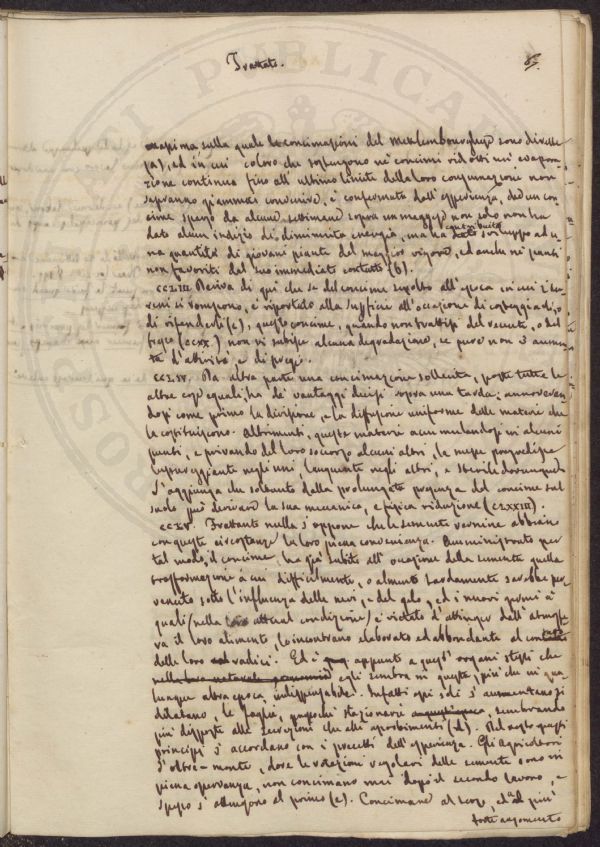 Trattato.
85.
massima sulla quale le concimazioni del Meklembourghese sono dirette
(a), ed in cui coloro che sostengono ne' concimi ridotti un' evapora-
zione continua fino all' ultimo limite della loro consumazione non
sapranno giammai convenire, è confermata dall' esperienza, che un con-
cime sparso da alcune settimane sopra un maggese non solo non ha
dato alcun indizio di diminuita energia, ma ha contribuito sviluppo ad u-
na quantità di giovani piante del maggior vigore, ed anche ne' punti
non favoriti dal suo immediato contatto (b).
CCLIII. Deriva di qui che se del concime sepolto all' epoca in cui i ter-
reni si rompono, è riportato alla superficie all' occasione di
di rifenderli (c), questo concime, quando non trattisi del recente, o del
fresco (CCXX.) non vi subisce alcuna degradazione, se pure non s' aumen-
ta d' attività e di pregi.
CCLIV. Da altra parte una concimazione sollecita, poste tutte le
altre cose eguali, ha de' vantaggi decisi sopra una tarda: annoveran-
dosi come primo la divisione, e la diffusione uniforme delle materie che
la costituiscono. Altrimenti, queste materie accumulandosi in alcuni
punti, e privando del loro soccorso alcuni altri, la messe
lussureggiante negli uni, languente negli altri, e sterile dovunque
S' aggiunga che soltanto dalla prolungata presenza del concime sul
suolo può derivare la sua meccanica, e fisica riduzione (CLXXIII).
CCLV. Frattanto nulla s' oppone che le semente vernine abbian
con queste circostanze la loro piena convenienza. Amministrato per
tal modo, il concime, ha già subito all' occasione della semente quella
trasformazione a cui difficilmente, o almeno tardamente sarebbe per-
venuto sotto l' influenza delle nevi, e del gelo, ed i nuovi germi a'
quali (nella loro attual condizione) è vietato d' attinger dall' atmosfe-
ra il loro alimento, lo incontrano elaborato ed abbondante al contatto
delle loro radici. Ed è appunto a quest' organi stessi che
egli sembra in questa, più che in qua-
lunque altra epoca, indispensabile. Infatti qui se di s' aumentano, si
dilatano, le foglie, pressochè stazionarie, sembrando
più disposte alle secrezioni che agli assorbimenti (d). Del resto questi
principj s' accordano con i precetti dell' esperienza. Gli Agricoltori
d' oltre-monte, dove le rotazioni regolari delle semente sono in
piena osservanza, non concimano mai dopo il secondo lavoro, e
spesso s' attengono al primo (e). Concimano al
forte argomento